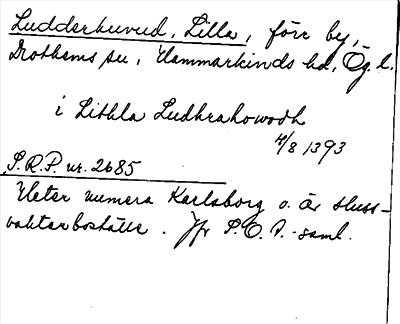 Ludderhuvud, Lilla, förr by,
Drothems sn, Hammarkinds hd, Ög. l.
i Lithla Ludhrahowodh
4/8 1393
S.R.P. nr. 2685
Heter numera Karlsborg o. är sluss-
vaktarboställe. Jfr S.O.P.-saml.